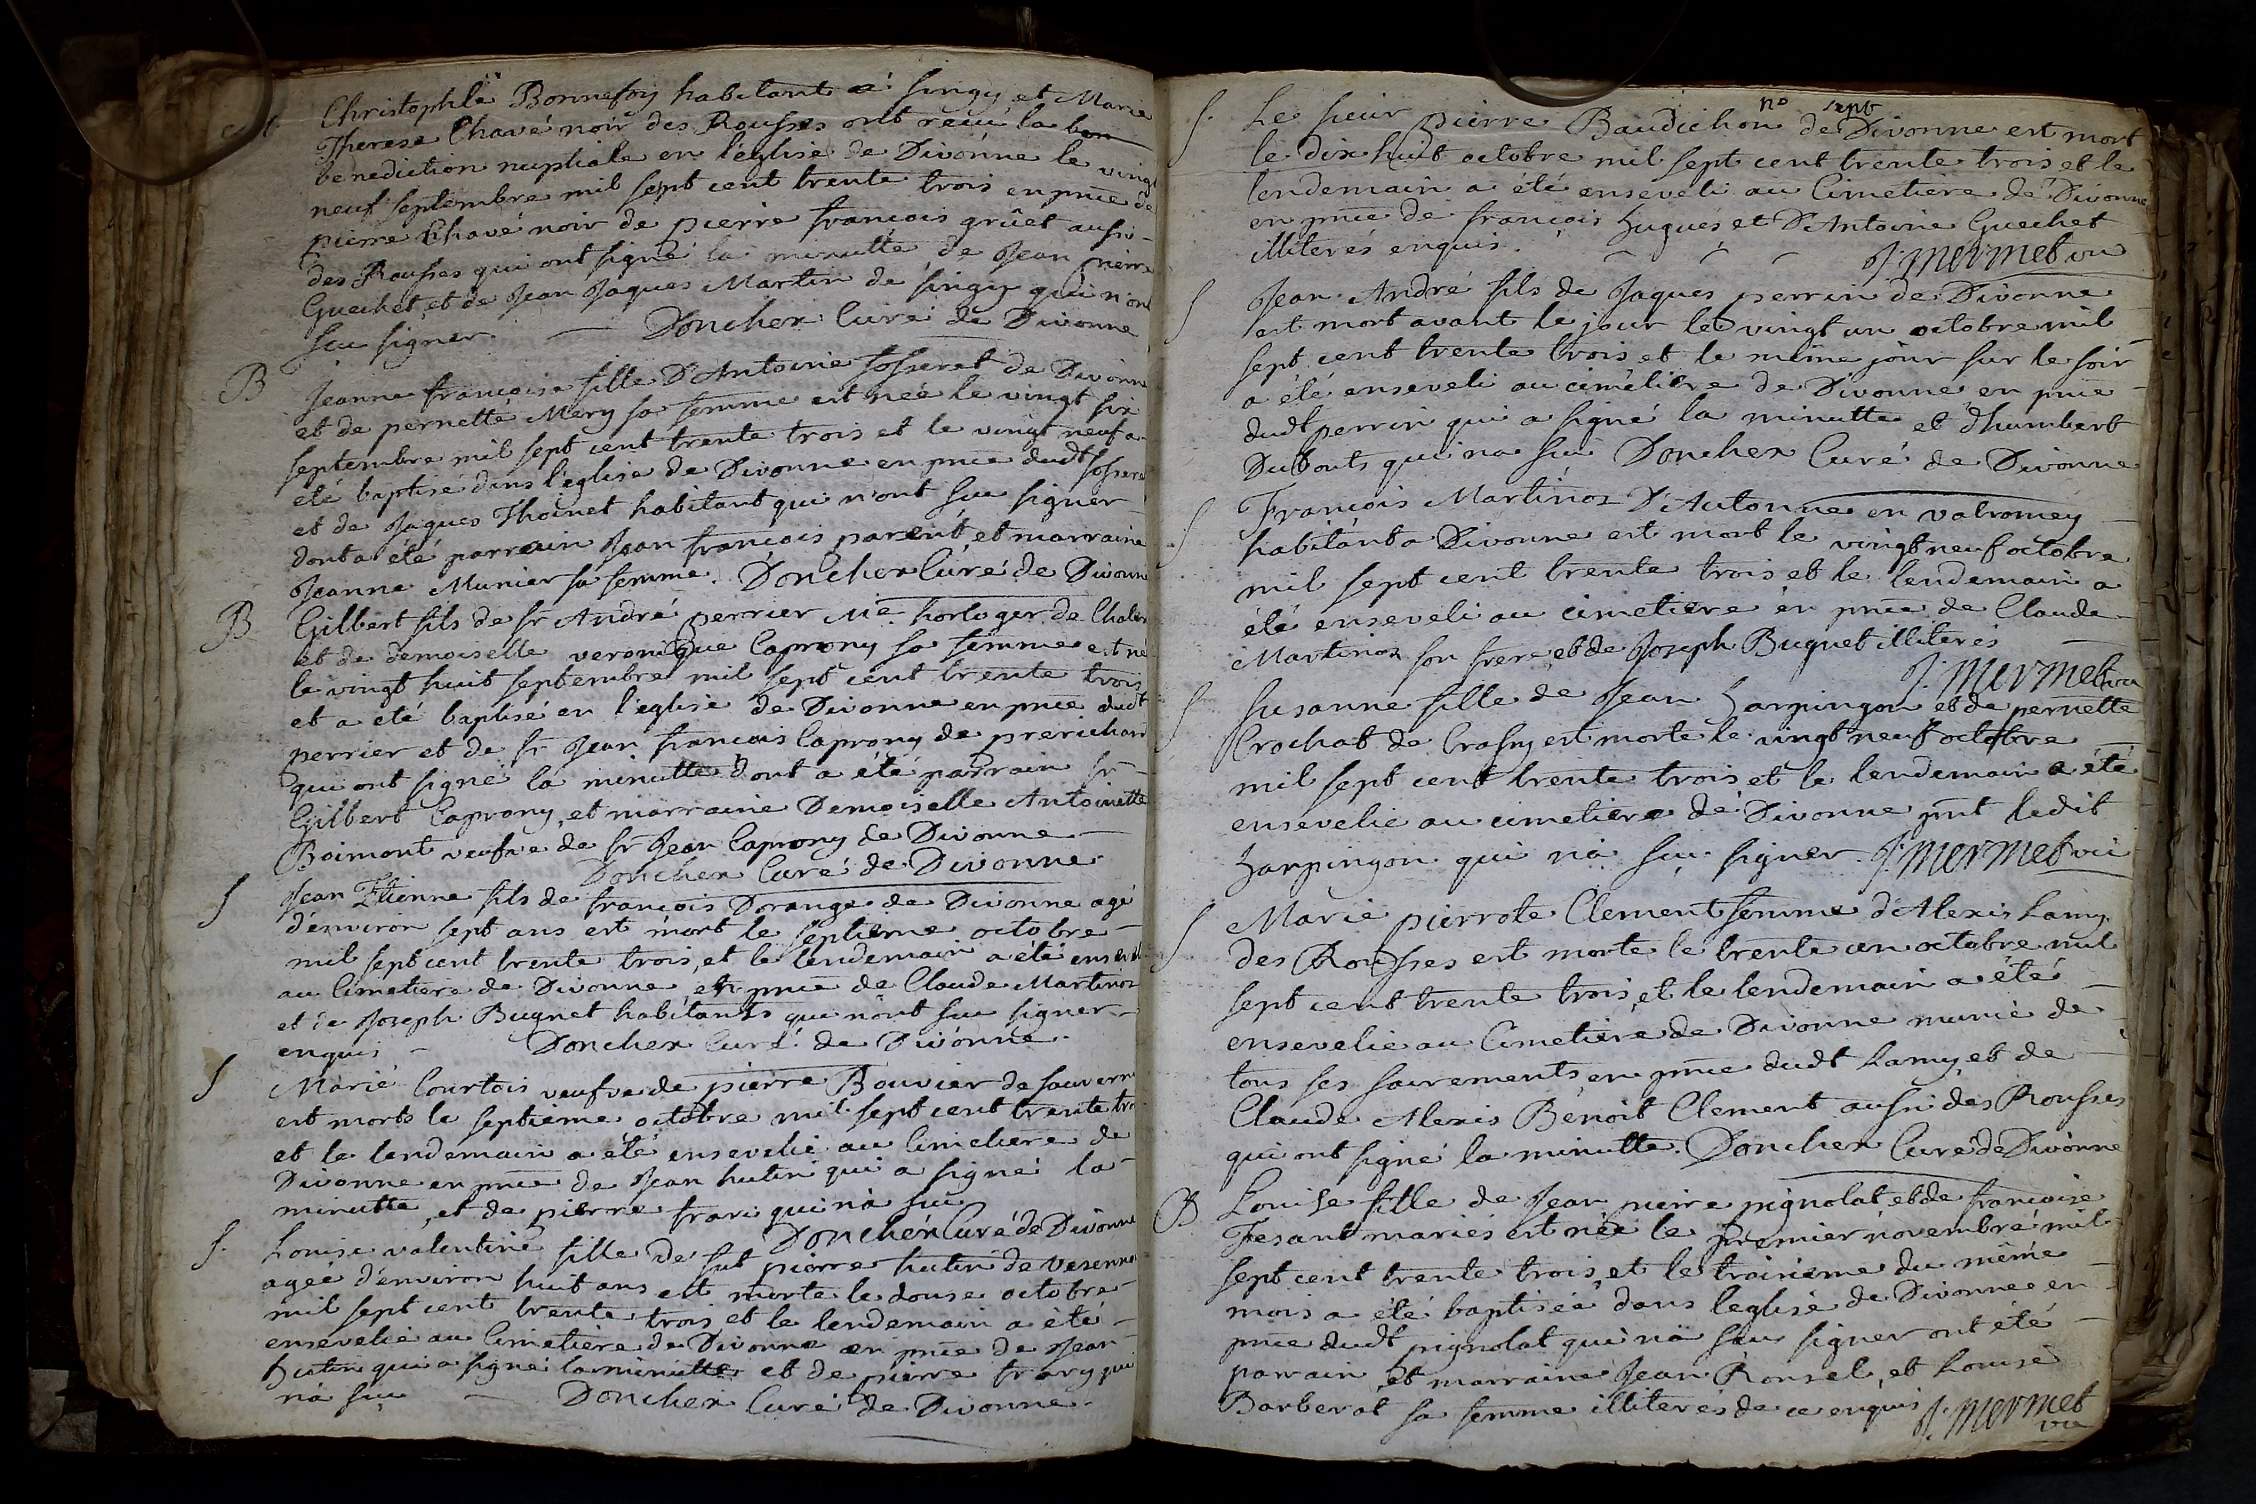 Christophle Bonnefoy habitant a singy et Marie
Therese Chavé noir des Rousses ont recu la ben
benediction nuptiale en l'eglise de Divonne le vingt
neuf septembre mil sept cent trente trois en pnce de
pierre Chavé noir de pierre francois grûet aussi
des Rousses qui ont signé la minutte de Jean pierre
Guechet, et de Jean Jaques Martin de singy qui n'ont
scu signer. Donchex Curé de Divonne
B Jeanne francoise fille D'Antoine fosseret de Divonne
et de pernette Mery sa femme est née le vingt six
septembre mil sept cent trente trois et le vingt neuf a
été baptisé dans l'eglise de Divonne en pnce dudt fosseret
et de Jaques Thoinet habitant qui n'ont scu signer
dont a été parrain Jean francois parent, et marraine
Jeanne Munier sa femme. Donchex Curé de Divonne
B Gilbert fils de sr André perrier Me horloger de
et de demoiselle veronique Caprony sa femme est né
le vingt huit septembre mil sept cent trente trois
et a eté baptisé en l'eglise de Divonne en pnce dudt
perrier et de sr Jean francois Caprony de
qui ont signé la minutte dont a été parrain sr
Gilbert Caprony, et marraine Demoiselle Antoinette
Boimont veufve de sr Jean Caprony de Divonne
Donchex Curé de Divonne
S Jean Etienne fils de francois Dorange de Divonne agé
d'environ sept ans est mort le septieme octobre
mil sept cent trente trois, et le lendemain a été enseveli
au Cimetiere de Divonne en pnce de Claude Martinod
et de Joseph Bugnet habitants qui n'ont scu signer
enquis Donchex Curé de Divonne
S Marie Courtois veufve de pierre Bouvier de sauverni
est morte le septieme octobre mil sept cent trente trois
et le lendemain a été ensevelie au Cimetiere de
Divonne en pnce de Jean hutin qui a signé la
minutte, et de pierre frari qui n'a scu
Donchex Curé de Divonne
S. Louise valentine fille de fut pierre hutin de vesenner
agée d'environ huit ans est morte le douse octobre
mil sept cent trente trois et le lendemain a été
ensevelie au Cimetiere de Divonne en pnce de Jean
hutin qui a signé la minutte, et de pierre frary qui
na scu Donchex Curé de Divonne
no sept
S. Le sieur pierre Baudichon de Divonne est mort
le dix huit octobre mil sept cent trente trois et le
lendemain a été enseveli au Cimetiere de Divonne
en pnce de francois hugues et D'Antoine Guechet
illiterés enquis. J. Mermet vic
S Jean André fils de Jaques perrin de Divonne
est mort avant le jour le vingt un octobre mil
sept cent trente trois et le même jour sur le soir
a été enseveli au cimetiere de Divonne en pnce
dudt perrin qui a signé la minutte et d'humbert
Dubouts qui na scu Donchex Curé de Divonne
S Francois Martinod D'Autonne en valromey
habitant a Divonne est mort le vingt neuf octobre
mil sept cent trente trois et le lendemain a
été enseveli au cimetiere en pnce de Claude
Martinod son frere, et de Joseph Bugnet illiterés
J. Mermet vic
S Susanne fille de Jean Zarpingon et de pernette
Crochat de Crassy est morte le vingt neuf octobre
mil sept cent trente trois et le lendemain a été
ensevelie au cimetiere de Divonne pnt ledit
Zarpingon qui n'a scu signer. J. Mermet vic
S Marie pierrote Clement femme d'Alexis Lamy
des Rousses est morte le trente un octobre mil
sept cent trente trois, et le lendemain a été
ensevelie au Cimetiere de Divonne munie de
tous ses sacrements en pnce dudt Lamy, et de
Claude Alexis Benoit Clement aussi des Rousses
qui ont signé la minutte. Donchex Curé de Divonne
B Louise fille de Jean pierre pignolat et de francoise
Fesant mariés est née le premier novembre mil
sept cent trente trois, et le troisieme du même
mois a été baptisée dans leglise de Divonne en
pnce dudt pignolat qui n'a scu signer ont été
parrain, et marraine Jean Ronsel, et Louise
Barberat sa femme illiterés de ce enquis J. Mermet
vic